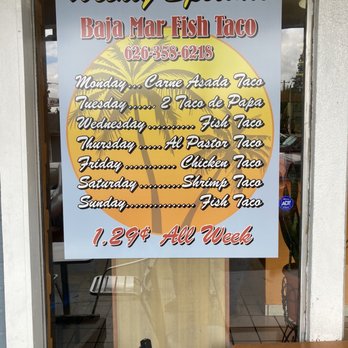 Weekly Specials
Baja Mar Fish Taco
626-358-0218
Monday... Carne Asada Taco
Tuesday...... 2 Taco de Papa
Wednesday.......... Fish Taco
Thursday..... Al Pastor Taco
Friday............ Chicken Taco
Saturday.........Shrimp Taco
Sunday............... Fish Taco
1.29¢ All Week
ADT